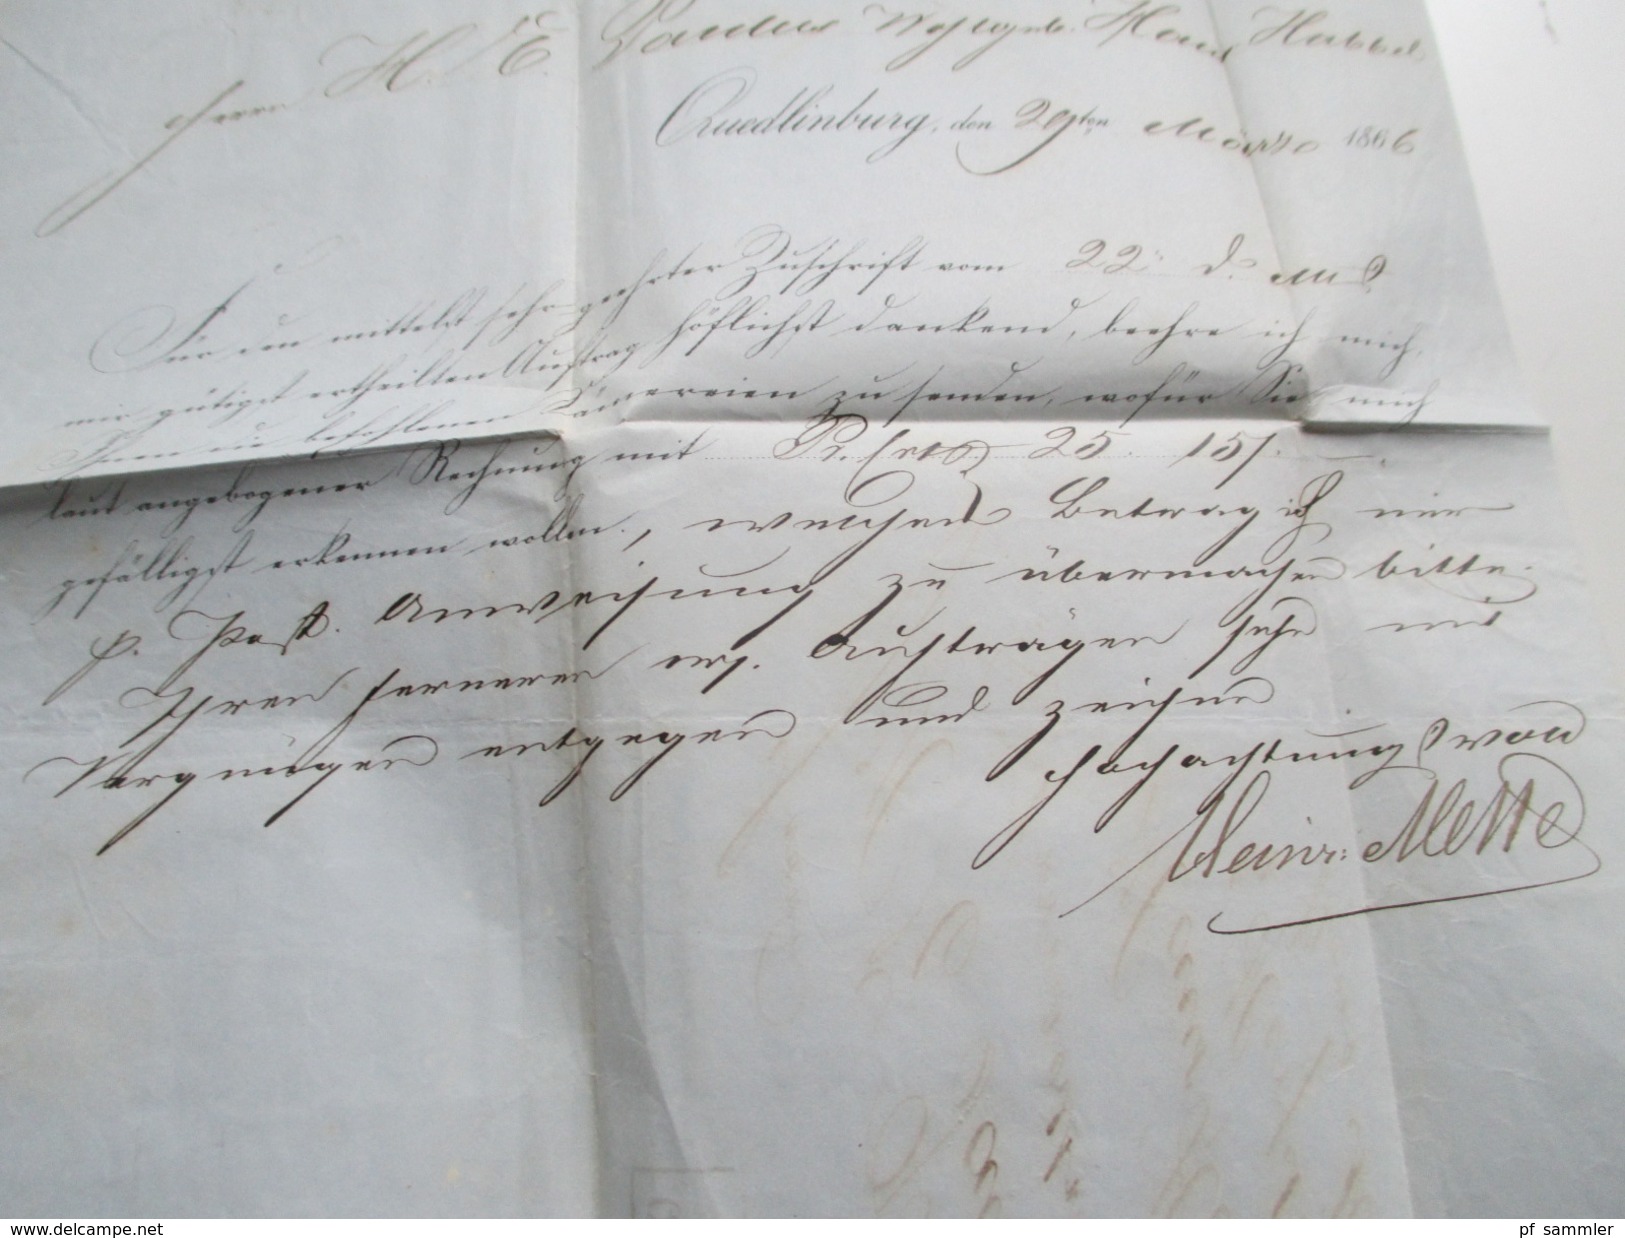 Herrn H. E. Paulus Wohlgeb.
Quedlinburg, den 29ten März 1866
Für den mittelst sehr geehrter Zuschrift vom 22 d. Mts
mir gütigst ertheilten Auftrag höflichst dankend, beehre ich mich,
Ihnen die befohlenen Sämereien zu senden, wofür Sie mich
laut angebogener Rechnung mit Pr. Crt 25. 15/. —.
gefälligst erkennen wollen., welchen Betrag ich mir
p. Post. Anweisung zu übermachen bitte.
Ihren ferneren erg. Aufträgen sehe mit
Vergnügen entgegen und zeichne
hochachtungsvoll
Heinr: Mette
www.delcampe.net
pf_sammler